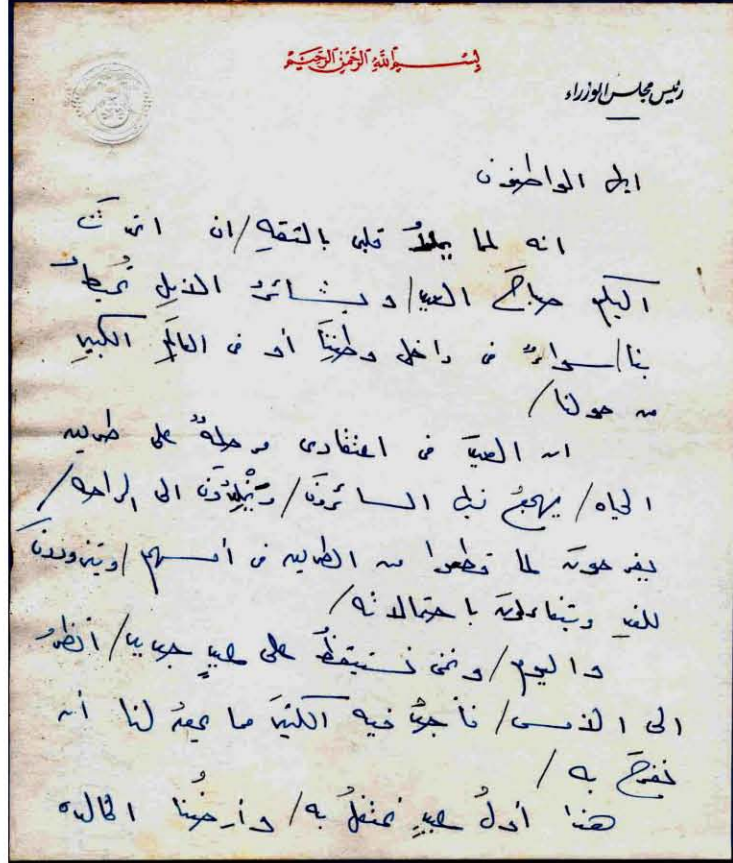 بسم الله الرحمن الرحيم
رئيس مجلس الوزراء
ايها المواطنون
انه لمما يملأُ قلبى بالثقهِ/ ان اتحدثَ
اليكم صباحَ العيد/ وبشائرُ الاملِ تُحيطُ
بنا/ سواءٌ فى داخل وطنِنا أو فى العالمِ الكبيرِ
من حولنا/
ان العيدَ فى اعتقادى مرحلةٌ على طريق
الحياه/ يهجعُ عندها السائرونَ/ ويَخْلِدُونَ الى الراحه/
يفرحون لما قطعوا من الطريق فى أمسهم/ ويتزودونَ
للغدِ ويتفاءلون باحتمالاته/
واليوم/ ونحن نستيقظُ على عيدٍ جديد/ أنظرُ
الى الأمسِ/ فأجدُ فيه الكثيرَ مما يحقُ لنا أن
نفرحَ به/
هذا أولُ عيدٍ نحتفلُ به/ وأرضُنا الخالده